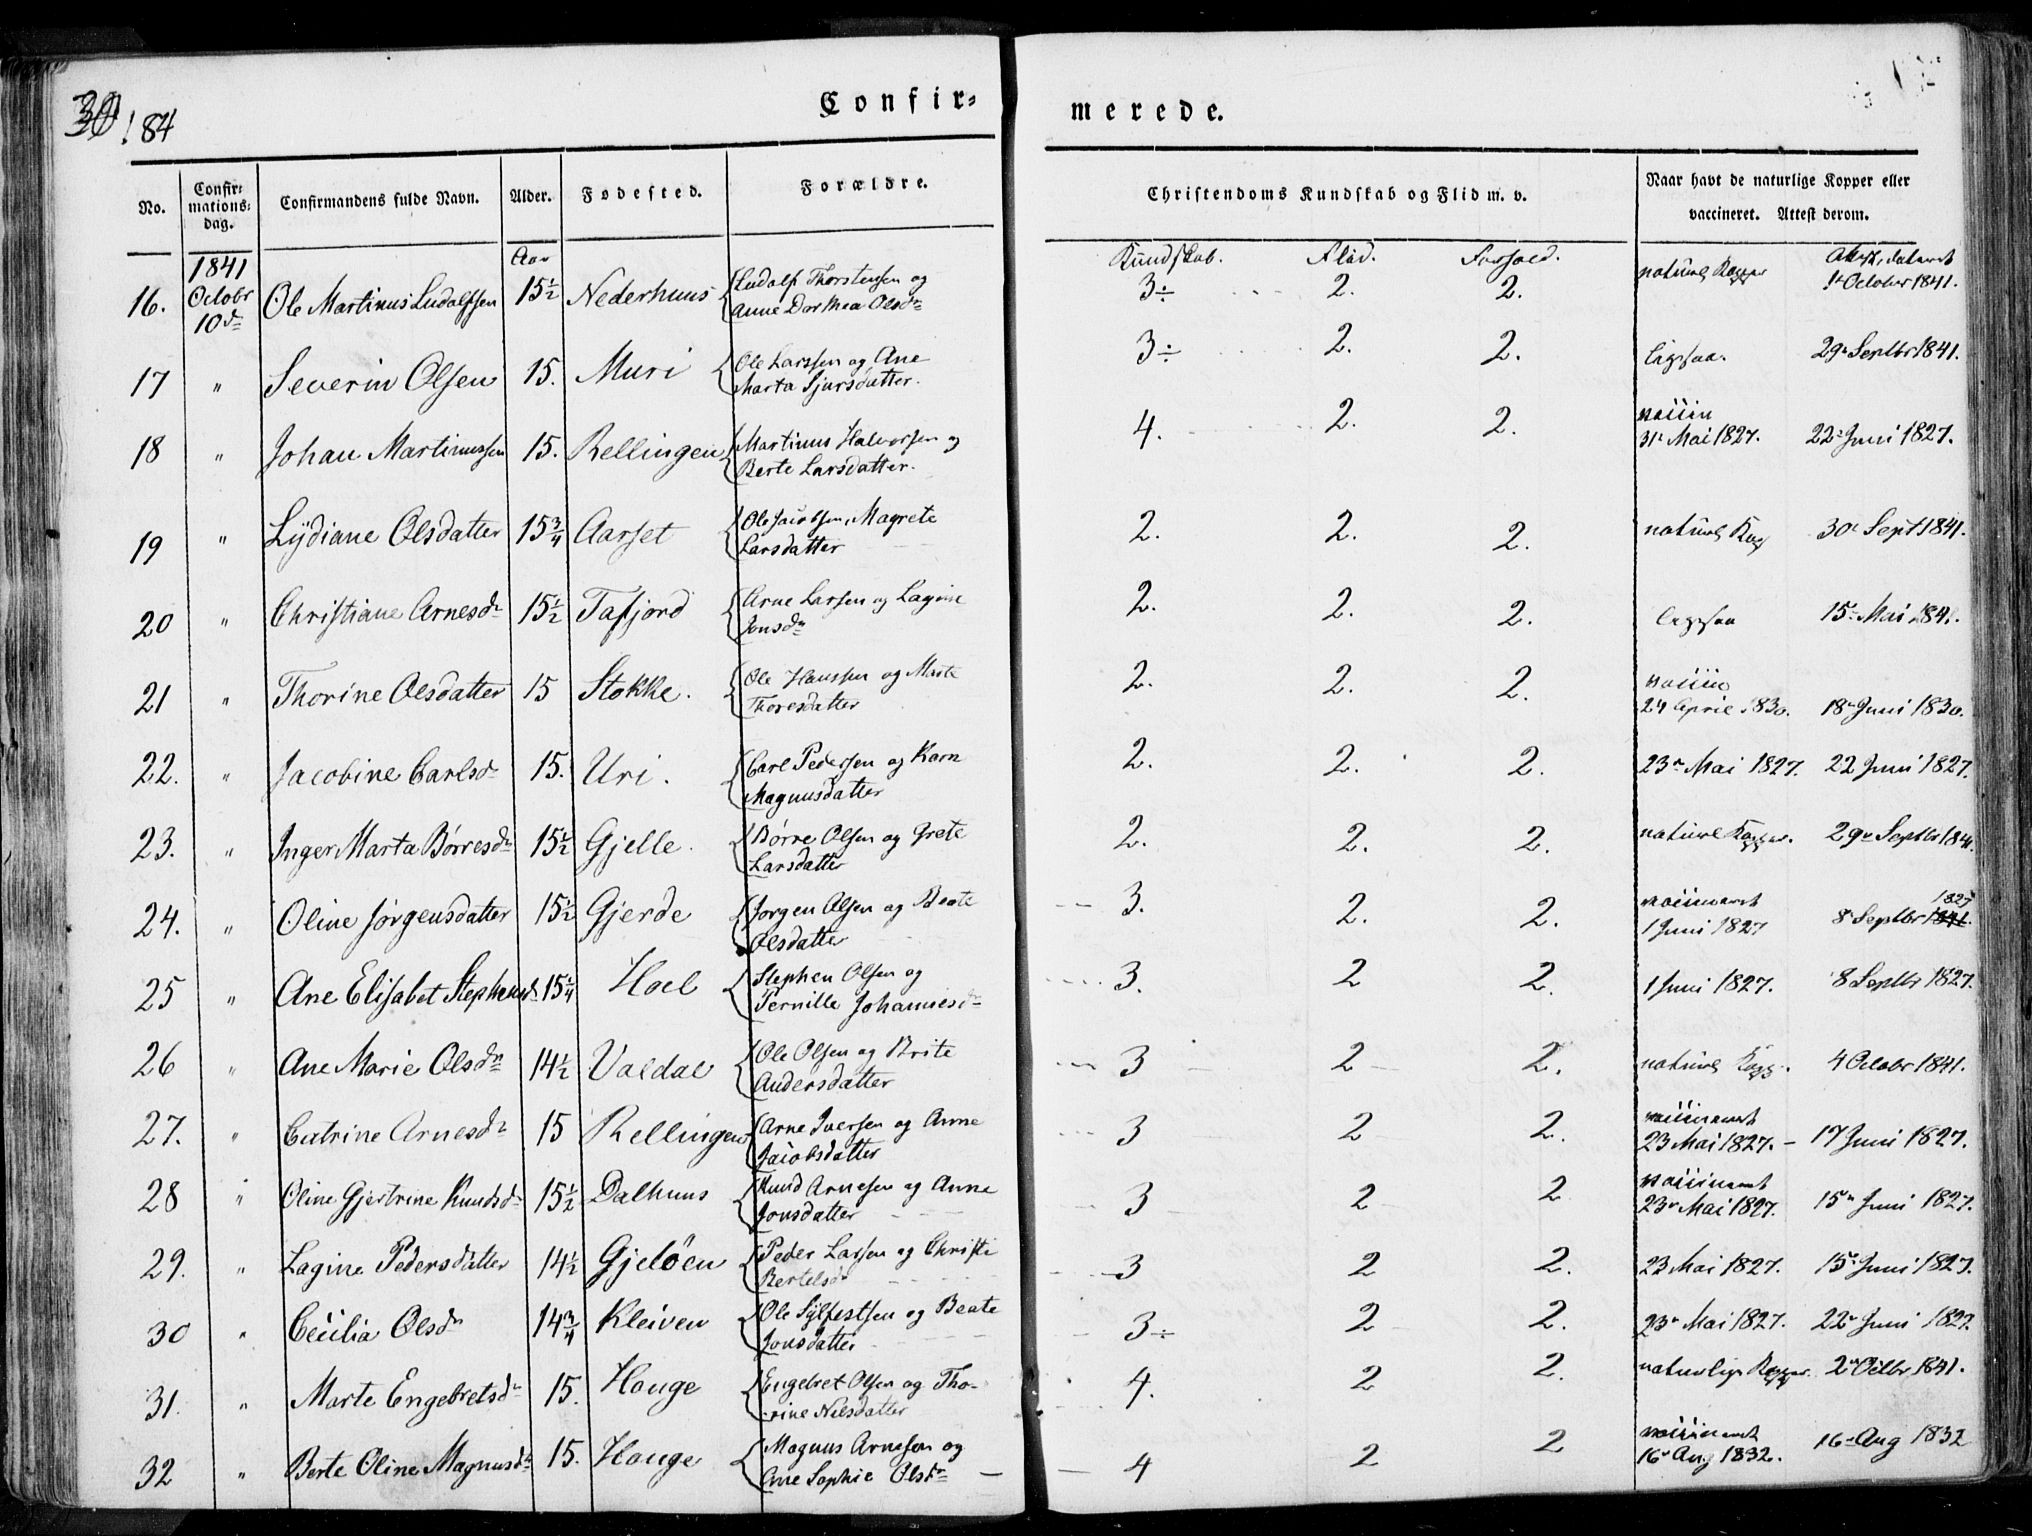 184
Confir-
merede.
No.
Confir-
mations-
dag.
Confirmandens fulde Navn.
Alder.
Fødested.
Forældre.
Christendoms Kundskab og Flid m. v.
Naar havt de naturlige Kopper eller
vaccineret. Attest derom.
1841 Aar Kundskab. Flid. Forhold.
16. Octobr 10de Ole Martinus Ludolfsen 15½ Nederhuus Ludolf Thorstensen og
Anne Dorthea Olsdr 3÷ 2. 2. naturl Kopper 1t October 1841.
17 " Severin Olsen 15. Muri Ole Larssen og Ane
Marta Sjursdatter. 3÷ 2. 2. ligesaa. 29 Septbr 1841.
18 " Johan Martinussen 15. Rellingen Martinus Halvorsen og
Berte Larsdatter. 4. 2. 2. vaccin
31 Mai 1827. 22 Juni 1827.
19 " Lydiane Olsdatter 15¾ Aarset Ole Jacobsen, Magrete
Larsdatter 2. 2. 2. naturl Kop 30 Sept 1841.
20 " Christiane Arnesdr 15½ Tafjord Arne Larsen og Lagine
Jonsdr 2. 2. 2. ligesaa 15 Mai 1841.
21 " Thorine Olsdatter 15 Stokke. Ole Hanssen og Marte
Thoresdatter 2. 2. 2. vaccin
24 April 1830. 18 Juni 1830.
22. " Jacobine Carlsdr 15. Uri. Carl Pedersen og Karn
Magnusdatter 2. 2. 2. 23 Mai 1827. 22 Juni 1827.
23. " Inger Marta Børresdr 15½ Gjelle. Børre Olsen og Grete
Larsdatter 2. 2. 2. naturl Kopper. 29 Septbr 1841.
24. " Oline Jørgensdatter 15½ Gjerde Jørgen Olsen og Beate
Olsdatter 3. 2. 2. vaccineret 1827
1 Juni 1827 8 Septbr 1841.
25 " Ane Elisabet Stephensd. 15¼ Hoel Stephen Olsen og
Pernille Johannesdr 3. 2 2. 1 Juni 1827. 8 Septbr 1827.
26 " Ane Marie Olsdr 14½ Valdal Ole Olsen og Brite
Andersdatter 3 2 2. naturl Kopp. 4 Octobr 1841.
27. " Catrine Arnesdr 15 Rellingen Arne Iversen og Anne
Jacobsdatter 3 2 2. vaccineret
23 Mai 1827. 17 Juni 1827.
28 " Oline Gjertrine Knudsdr 15½ Dalhuus Knud Arnesen og Anne
Jonsdatter 3 2 2 vaccineret
23 Mai 1827. 15 Juni 1827.
29. " Lagine Pedersdatter 14½ Gjeløen Peder Larsen og Christi
Bertelsdr 3 2 2. 23 Mai 1827. 15 Juni 1827.
30 " Cecilia Olsdr 14¾ Kleiven Ole Sylfestsen og Beate
Jonsdatter 3÷ 2 2. 23 Mai 1827. 22 Juni 1827.
31. " Marte Engebretsdr 15. Houge Engebret Olsen og Tho-
rine Nilsdatter 4. 2 2. naturlige Kopper. 2 Octbr 1841.
32 " Berte Oline Magnusdr 15. Houge Magnus Arnesen og
Ane Sophie Olsdr 4 2 2 vaccineret
16 Aug 1832. 16 Aug 1832